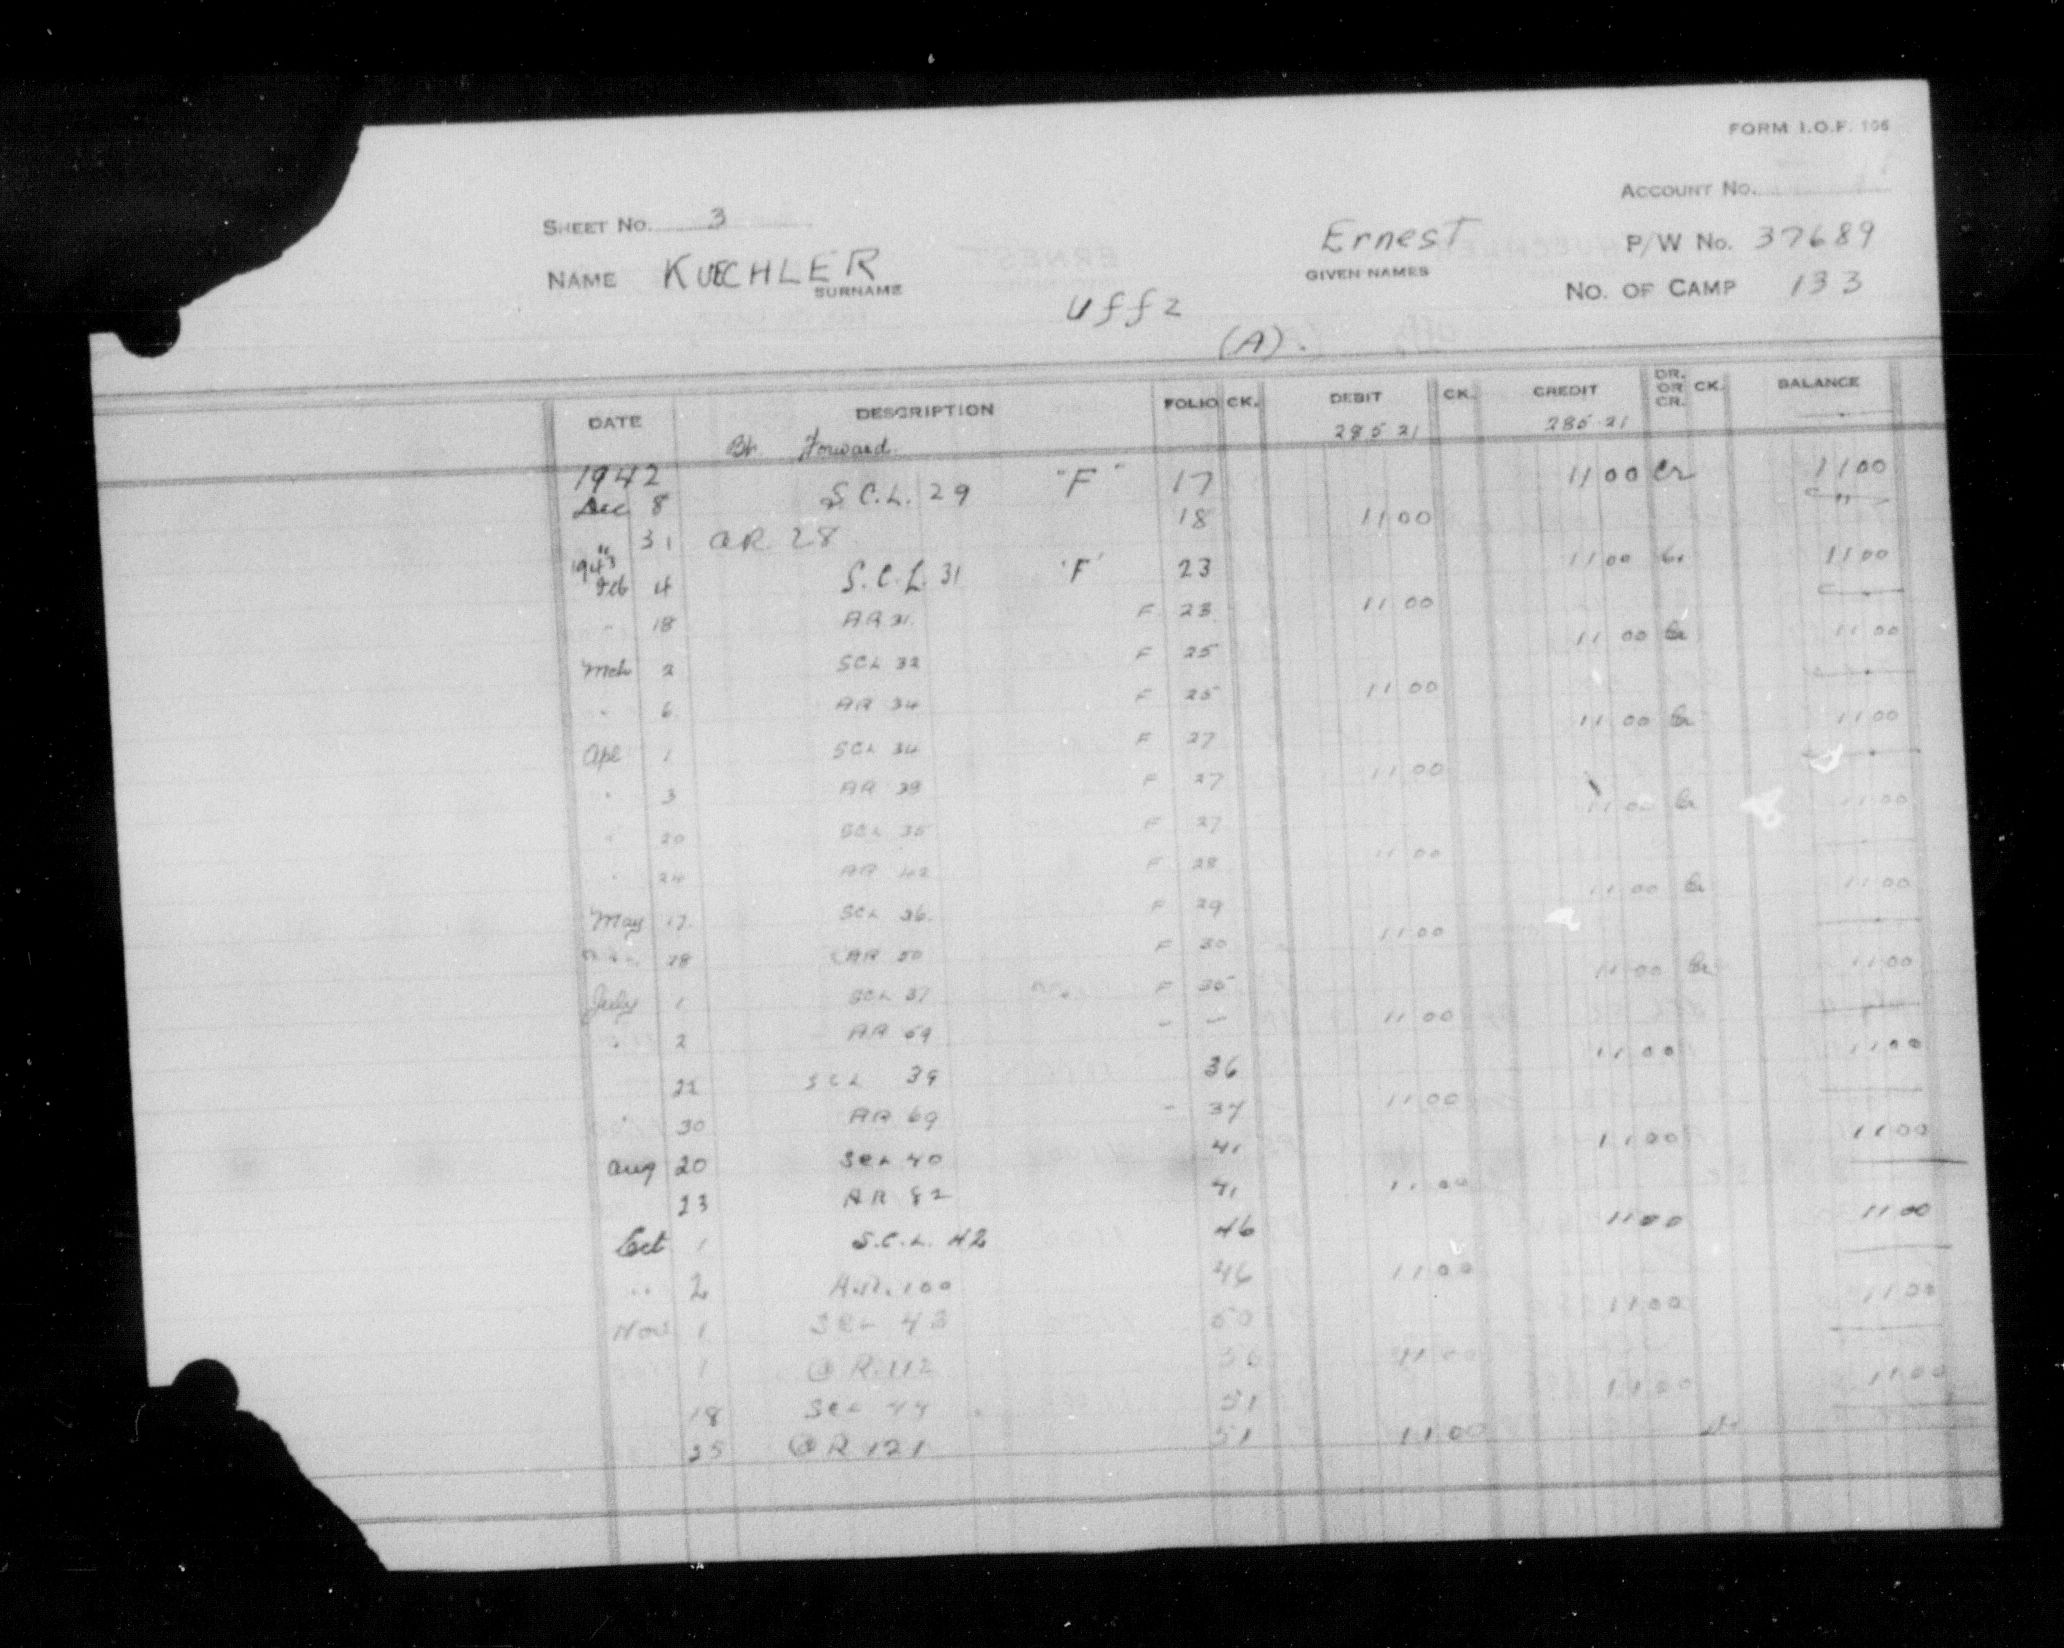 FORM I.O.F. 106
ACCOUNT No.
SHEET No. 3
Ernest P/W No. 37689
NAME KUECHLER GIVEN NAMES
SURNAME No. OF CAMP 133
Uffz
(A).
DATE DESCRIPTION FOLIO CK. DEBIT CK. CREDIT DR. OR CR. CK. BALANCE
Bt. Forward. 285 21 285 21
1942
Dec 8 S.C.L. 29 "F" 17 11 00 Cr 11 00
" 31 AR 28 18 11 00
1943
Feb 4 S.C.L. 31 "F" 23 11 00 Cr 11 00
" 18 AR 31. F 23 11 00
Mch 2 SCL 32 F 25 11 00 Cr 11 00
" 6 AR 34 F 25 11 00
Apl 1 SCL 34 F 27 11 00 Cr 11 00
" 3 AR 39 F 27 11 00
" 20 SCL 35 F 27 11 00 Cr 11 00
" 24 AR 42 F 28 11 00
May 17. SCL 36. F 29 11 00 Cr 11 00
28 AR 50 F 30 11 00
July 1 SCL 37 F 35 11 00 Cr 11 00
" 2 AR 59 - - 11 00
22 SCL 39 36 11 00 11 00
" 30 AR 69 - 37 11 00
Aug 20 SCL 40 41 11 00 11 00
23 AR 82 41 11 00
Oct 1 S.C.L. 42 46 11 00 11 00
" 2 A.R. 100 46 11 00
Nov 1 SCL 43 50 11 00 11 00
1 @R.112 50 11 00
18 SCL 44 51 11 00 11 00
25 @R 121 51 11 00